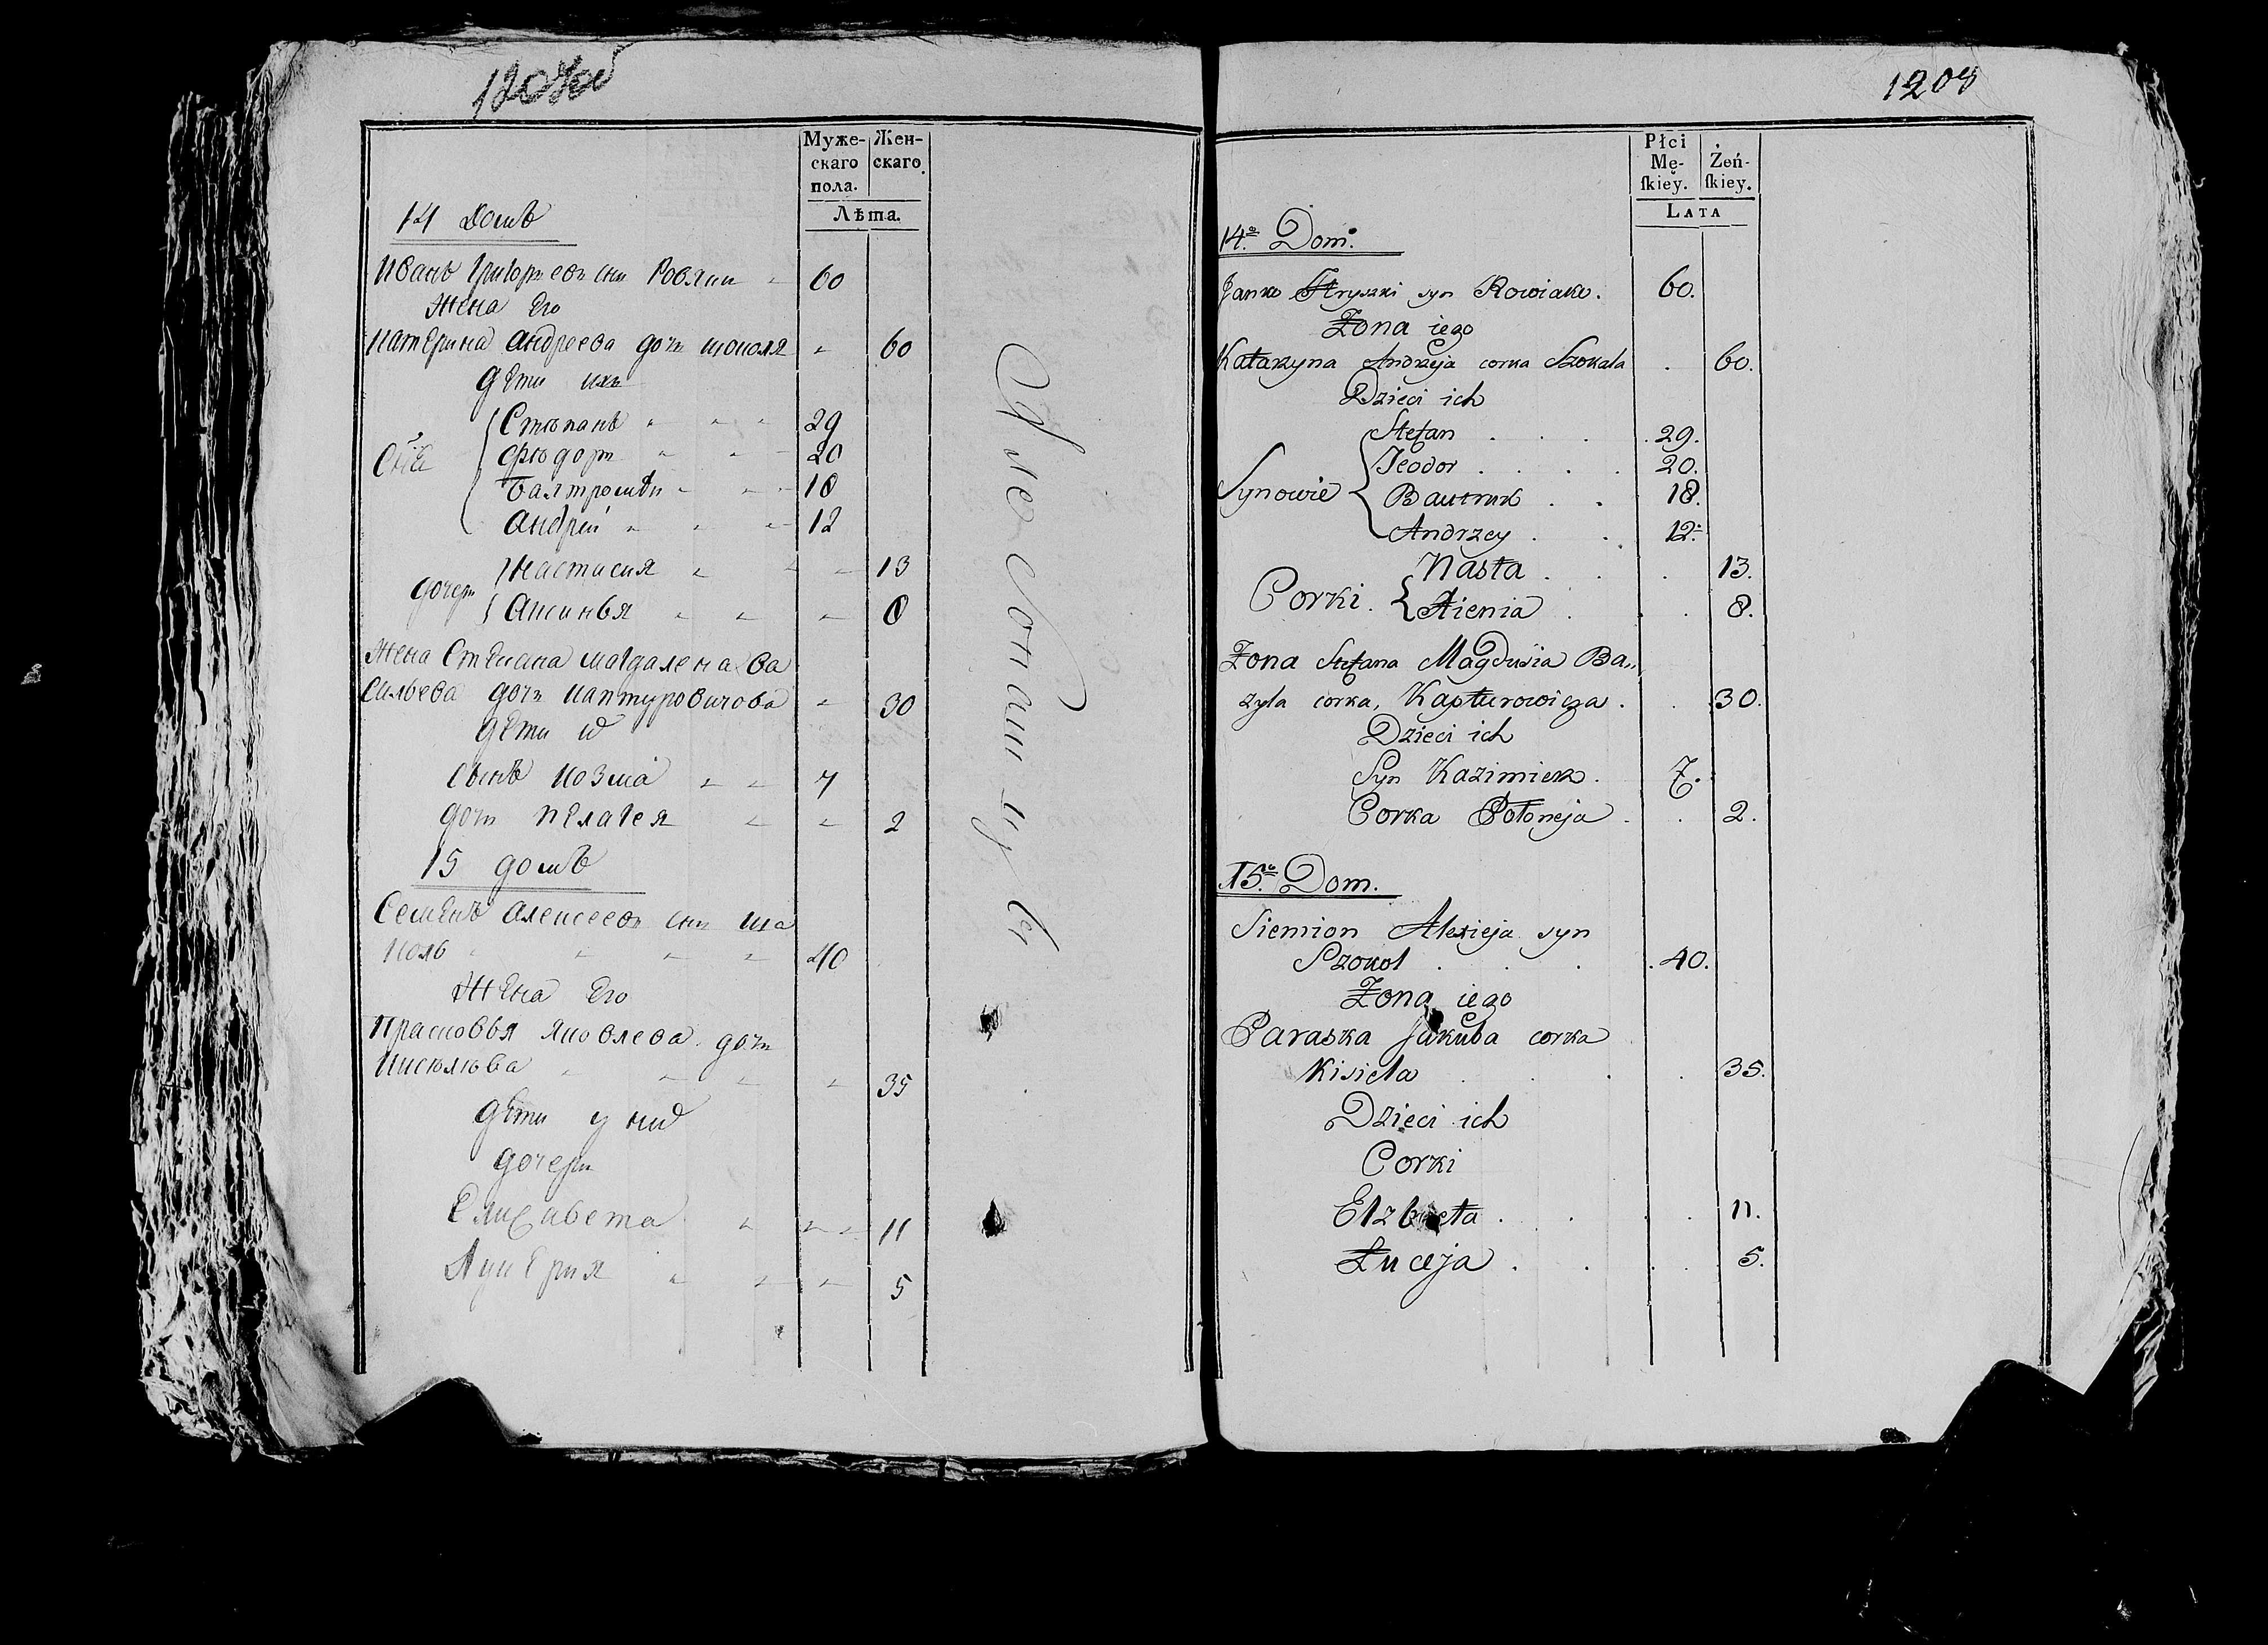 Муже-
скаго
пола.
Жен-
скаго.
Лѣта.
14 Домъ
Иванъ Григорьевъ сынъ Ровяки 60
Жена Его
Катерина Андреева дочь шоколя 60
дѣти ихъ
Степанъ 29
Федоръ 20
Балтромѣй 18
Андрей 12
дочери
Настасия 13
Аксинья 8
Жена Степана магдалена Ва
сильева дочь каптуровичова 30
дѣти
сынъ козма 7
дочь пелагея 2
15 домъ
Семенъ Алексеевъ сынъ ша
коль 40
Жена Его
Прасковья яковлева дочь
кисюлюва 35
дѣти у них
дочери
Елисавета 11
Лукерия 5
1209
Płci
Mę-
ſkiey.
Żeń-
ſkiey.
LATA
14.º Dom.
Janko Hryszki syn Rowiako. 60.
Żona iego
Katarzyna Andrzeja corka Szokala 60.
Dzieci ich
Synowie
Stefan 29.
Teodor 20.
Bautruk 18.
Andrzey 12.
Corki.
Nasta 13.
Aienia 8.
Żona Stefana Magdusia Ba,,
zyla corka, Kapturowicza. 30.
Dzieci ich
Syn Kazimierz. 7.
Corka Połoneja 2.
15.º Dom.
Siemion Alexieja syn
Szokol 40.
Żona iego
Paraszka Jakuba corka
Kisiela 35.
Dzieci ich
Corki
Elzbieta 11.
Łuceja 5.